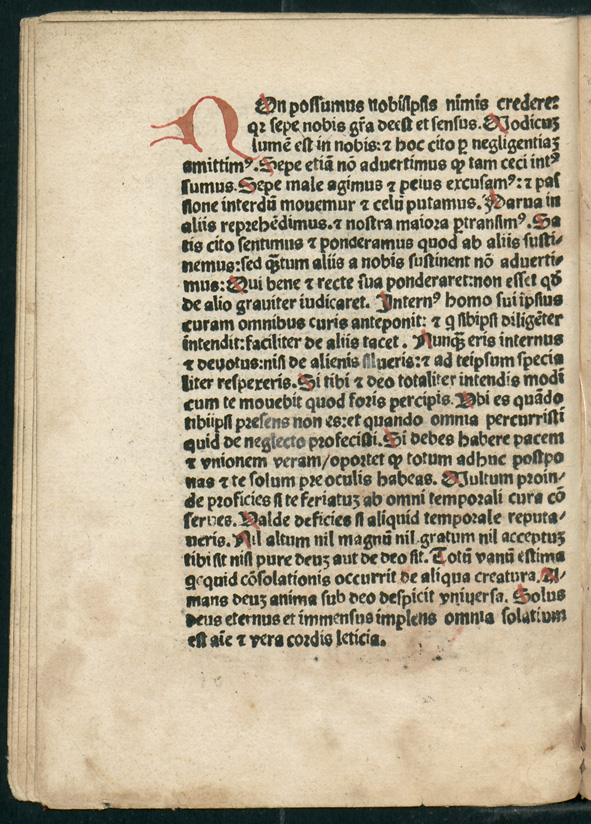 NOn possumus nobisipsis nimis credere:
qꝛ sepe nobis gr̃a deest et sensus. Modicuꝫ
lumē est in nobis: ⁊ hoc cito ꝑ negligentiaꝫ
amittimꝰ. Sepe etiā nō advertimus ꝙ tam ceci intꝰ
sumus. Sepe male agimus ⁊ peius excusamꝰ: ⁊ pas
sione interdū mouemur ⁊ celū putamus. Parua in
aliis reprehēdimus. ⁊ nostra maiora ꝑtransimꝰ. Sa
tis cito sentimus ⁊ ponderamus quod ab aliis susti⸗
nemus: sed q̃tum aliis a nobis sustinent nō aduerti⸗
mus: Qui bene ⁊ recte sua ponderaret: non esset qđ
de alio grauiter iudicaret. Internꝰ homo sui ipsius
curam omnibus curis anteponit: ⁊ q sibipsi diligēter
intendit: faciliter de aliis tacet. Nunq̃ꝫ eris internus
⁊ deuotus: nisi de alienis silueris: ⁊ ad teipsum specia
liter respexeris. Si tibi ⁊ deo totaliter intendis modi
cum te mouebit quod foris percipis. Vbi es quādo
tibiipsi presens non es: et quando omnia percurristi
quid de neglecto profecisti. Si debes habere pacem
⁊ vnionem veram/ oportet ꝙ totum adhuc postpo
nas ⁊ te solum pre oculis habeas. Multum proin⸗
de proficies si te feriatuꝫ ab omni temporali cura cō
serues. Valde deficies si aliquid temporale reputa⸗
ueris. Nil altum nil magnū nil gratum nil acceptuꝫ
tibi sit nisi pure deuꝫ aut de deo sit. Totū vanū estima
qͥcquid cōsolationis occurrit de aliqua creatura. A⸗
mans deuꝫ anima sub deo despicit vniuersa. Solus
deus eternus et immensus implens omnia solatium
est aīe ⁊ vera cordis leticia.